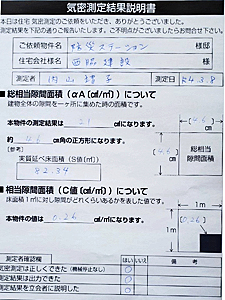 気密測定結果説明書
本日は住宅 気密測定のご依頼をいただき、ありがとうございました。
測定結果を下記の通りご報告いたします。ご不明点がございましたらお問合せ下さい。
ご依頼物件名 防災ステーション 様邸
住宅会社様名 西脇建設 様
測定者 内山 測定日 R4.3.8
■総相当隙間面積(αA(c㎡))について
建物全体の隙間を一ヶ所に集めた時の面積です。
本物件の測定結果は 21 c㎡になります。
約 4.6 cm角の正方形になります。
(4.6)
cm
(4.6)
cm
総相当
隙間面積
(参考)
実質延べ床面積(S値(㎡))
82.34
■相当隙間面積(C値(c㎡/㎡))について
床面積1㎡に対し隙間がどれくらいあるかを表した値です。
本物件の値は 0.26 c㎡/㎡になります。
1m
1m
(0.26)
測定者確認欄 はい いいえ 備考
気密測定は正しくできた(機械停止なし)
測定結果は出力できた
測定結果を立会者に説明した